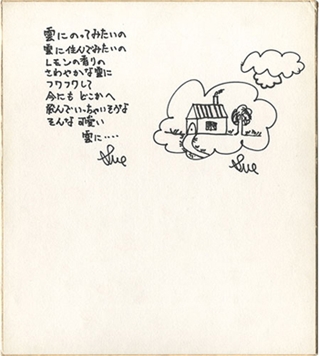 雲にのってみたいの
雲に住んでみたいの
レモンの香りの
さわやかな雲に
フワフワして
今にも どこかへ
飛んでいっちゃいそうな
そんな 可愛い
雲に‥‥
Sue
Sue